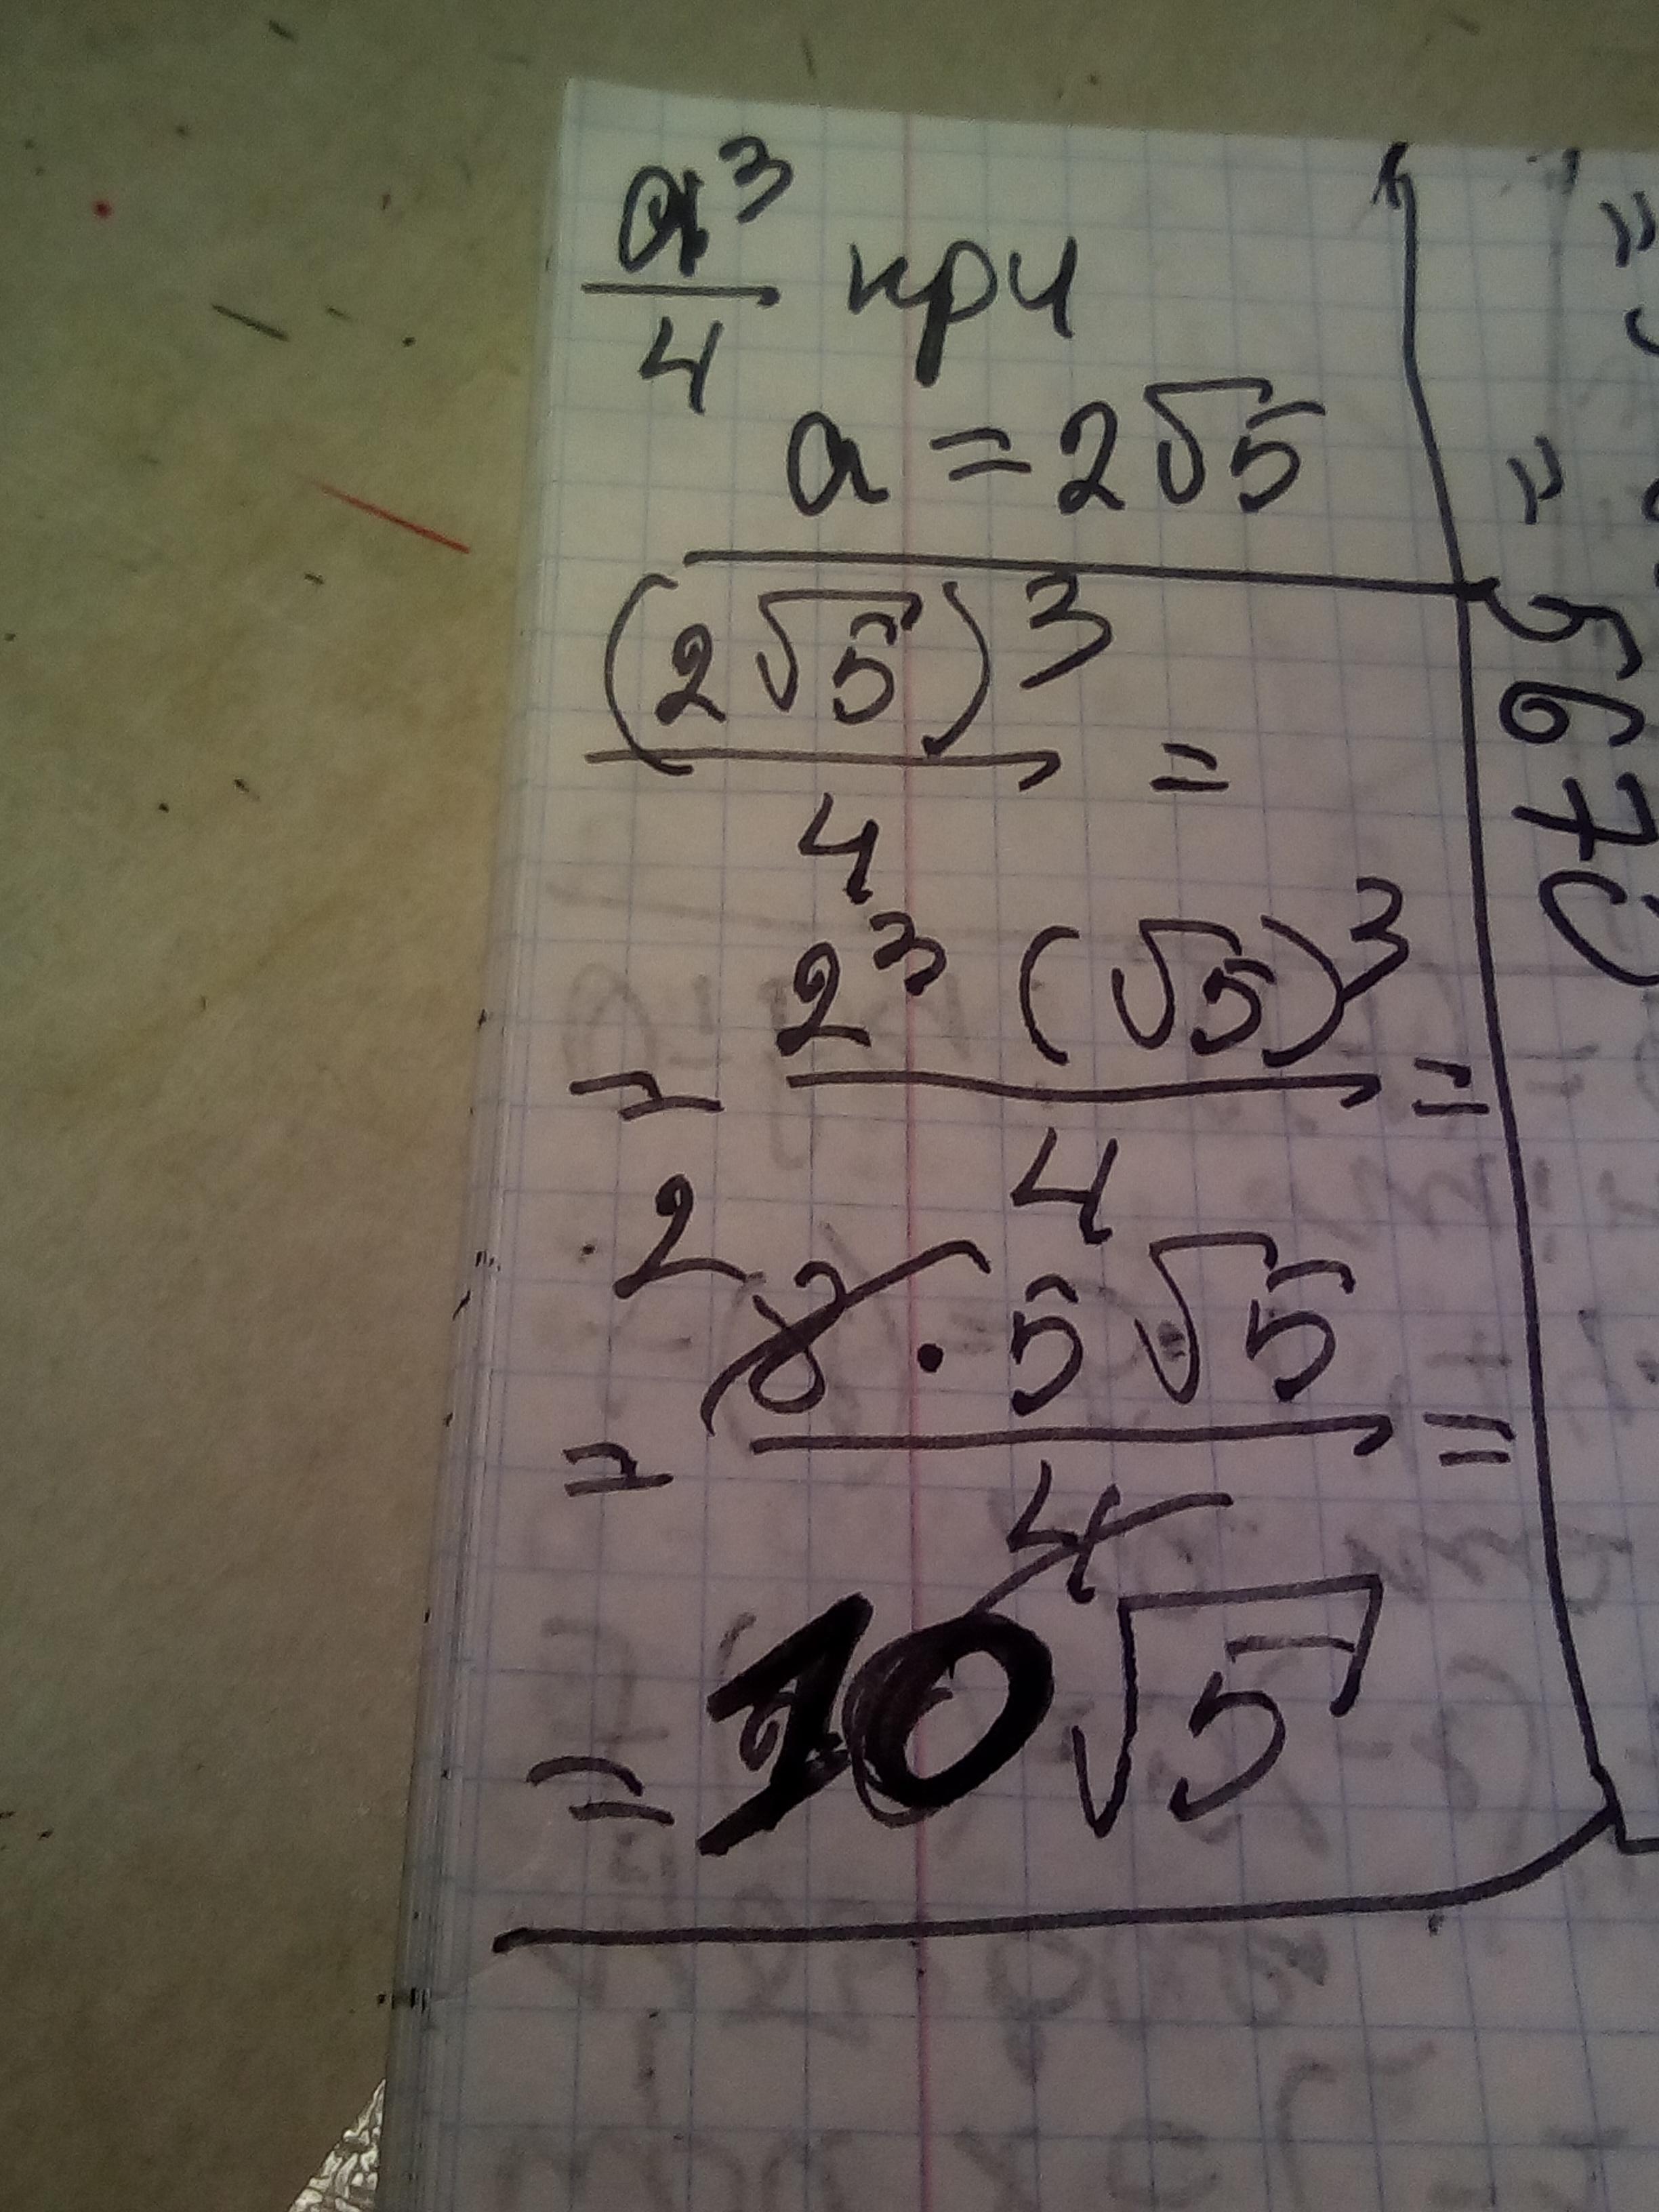 a³/4 при
a = 2√5
(2√5)³/4 =
= 2³(√5)³/4 =
2
= 8 · 5√5/4 =
= 10√5